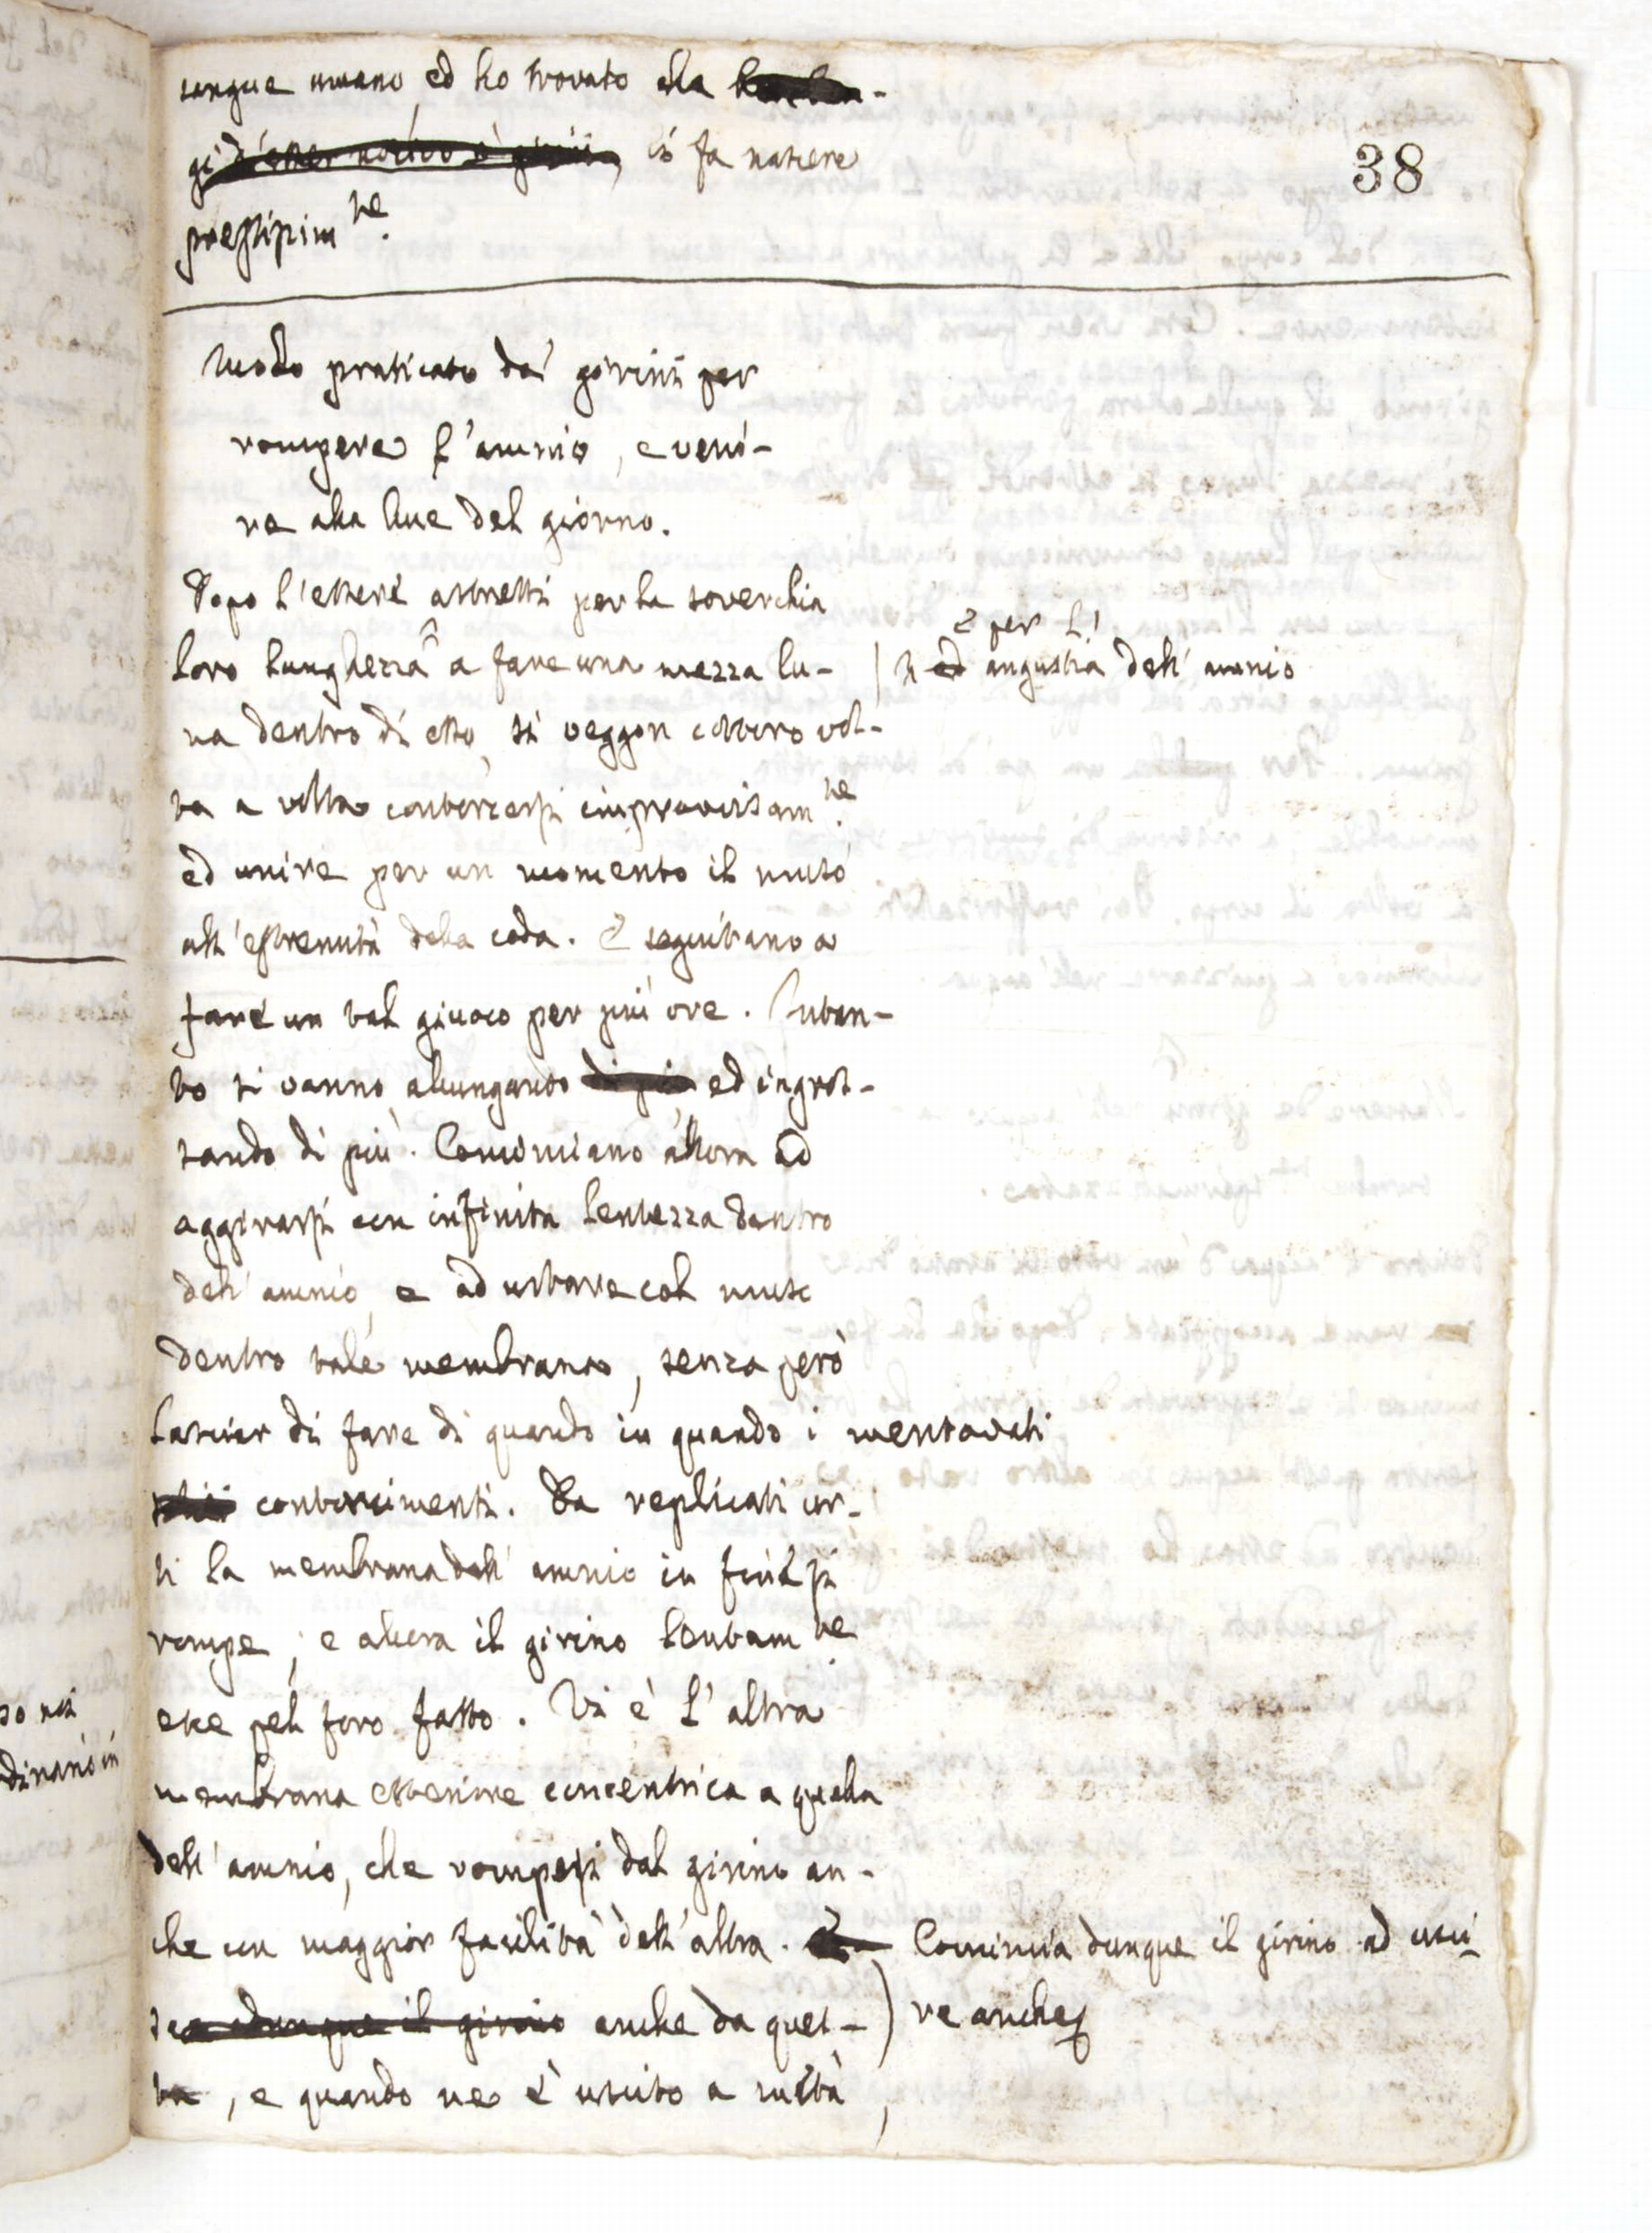 sangue umano, ed ho trovato che
li fa nascere
prestissim.te
38
Modo praticato da' girini per
rompere l'amnio, e veni-
re alla luce del giorno.
Dopo l'essere astretti per la soverchia
loro lunghezza a fare una mezza lu-
e per l'
angustia dell'amnio
na dentro di esso, si veggon costoro vol-
ta a volta contorcersi improvvisam.te
ed unire per un momento il muso
all'estremità della coda. E seguitano a
fare un tal giuoco per più ore. Intan-
to si vanno allungando di più ed ingros-
sando di più. Cominciano allora ad
aggirarsi con infinita lentezza dentro
dell'amnio, e ad urtare col muso
dentro tale membrana, senza però
lasciar di fare di quando in quando i mentovati
contorcimenti. Da replicati ur-
ti la membrana dell'amnio in fine si
rompe, e allora il girino lentam.te
esce pel foro fatto. Vi è l'altra
membrana esteriore concentrica a quella
dell'amnio, che rompesi dal girino an-
che con maggior facilità dell'altra.
Comincia dunque il girino ad usci-
adunque il girino anche da ques-
re anche
ta, e quando ne è uscito a metà
so nei
dinario in